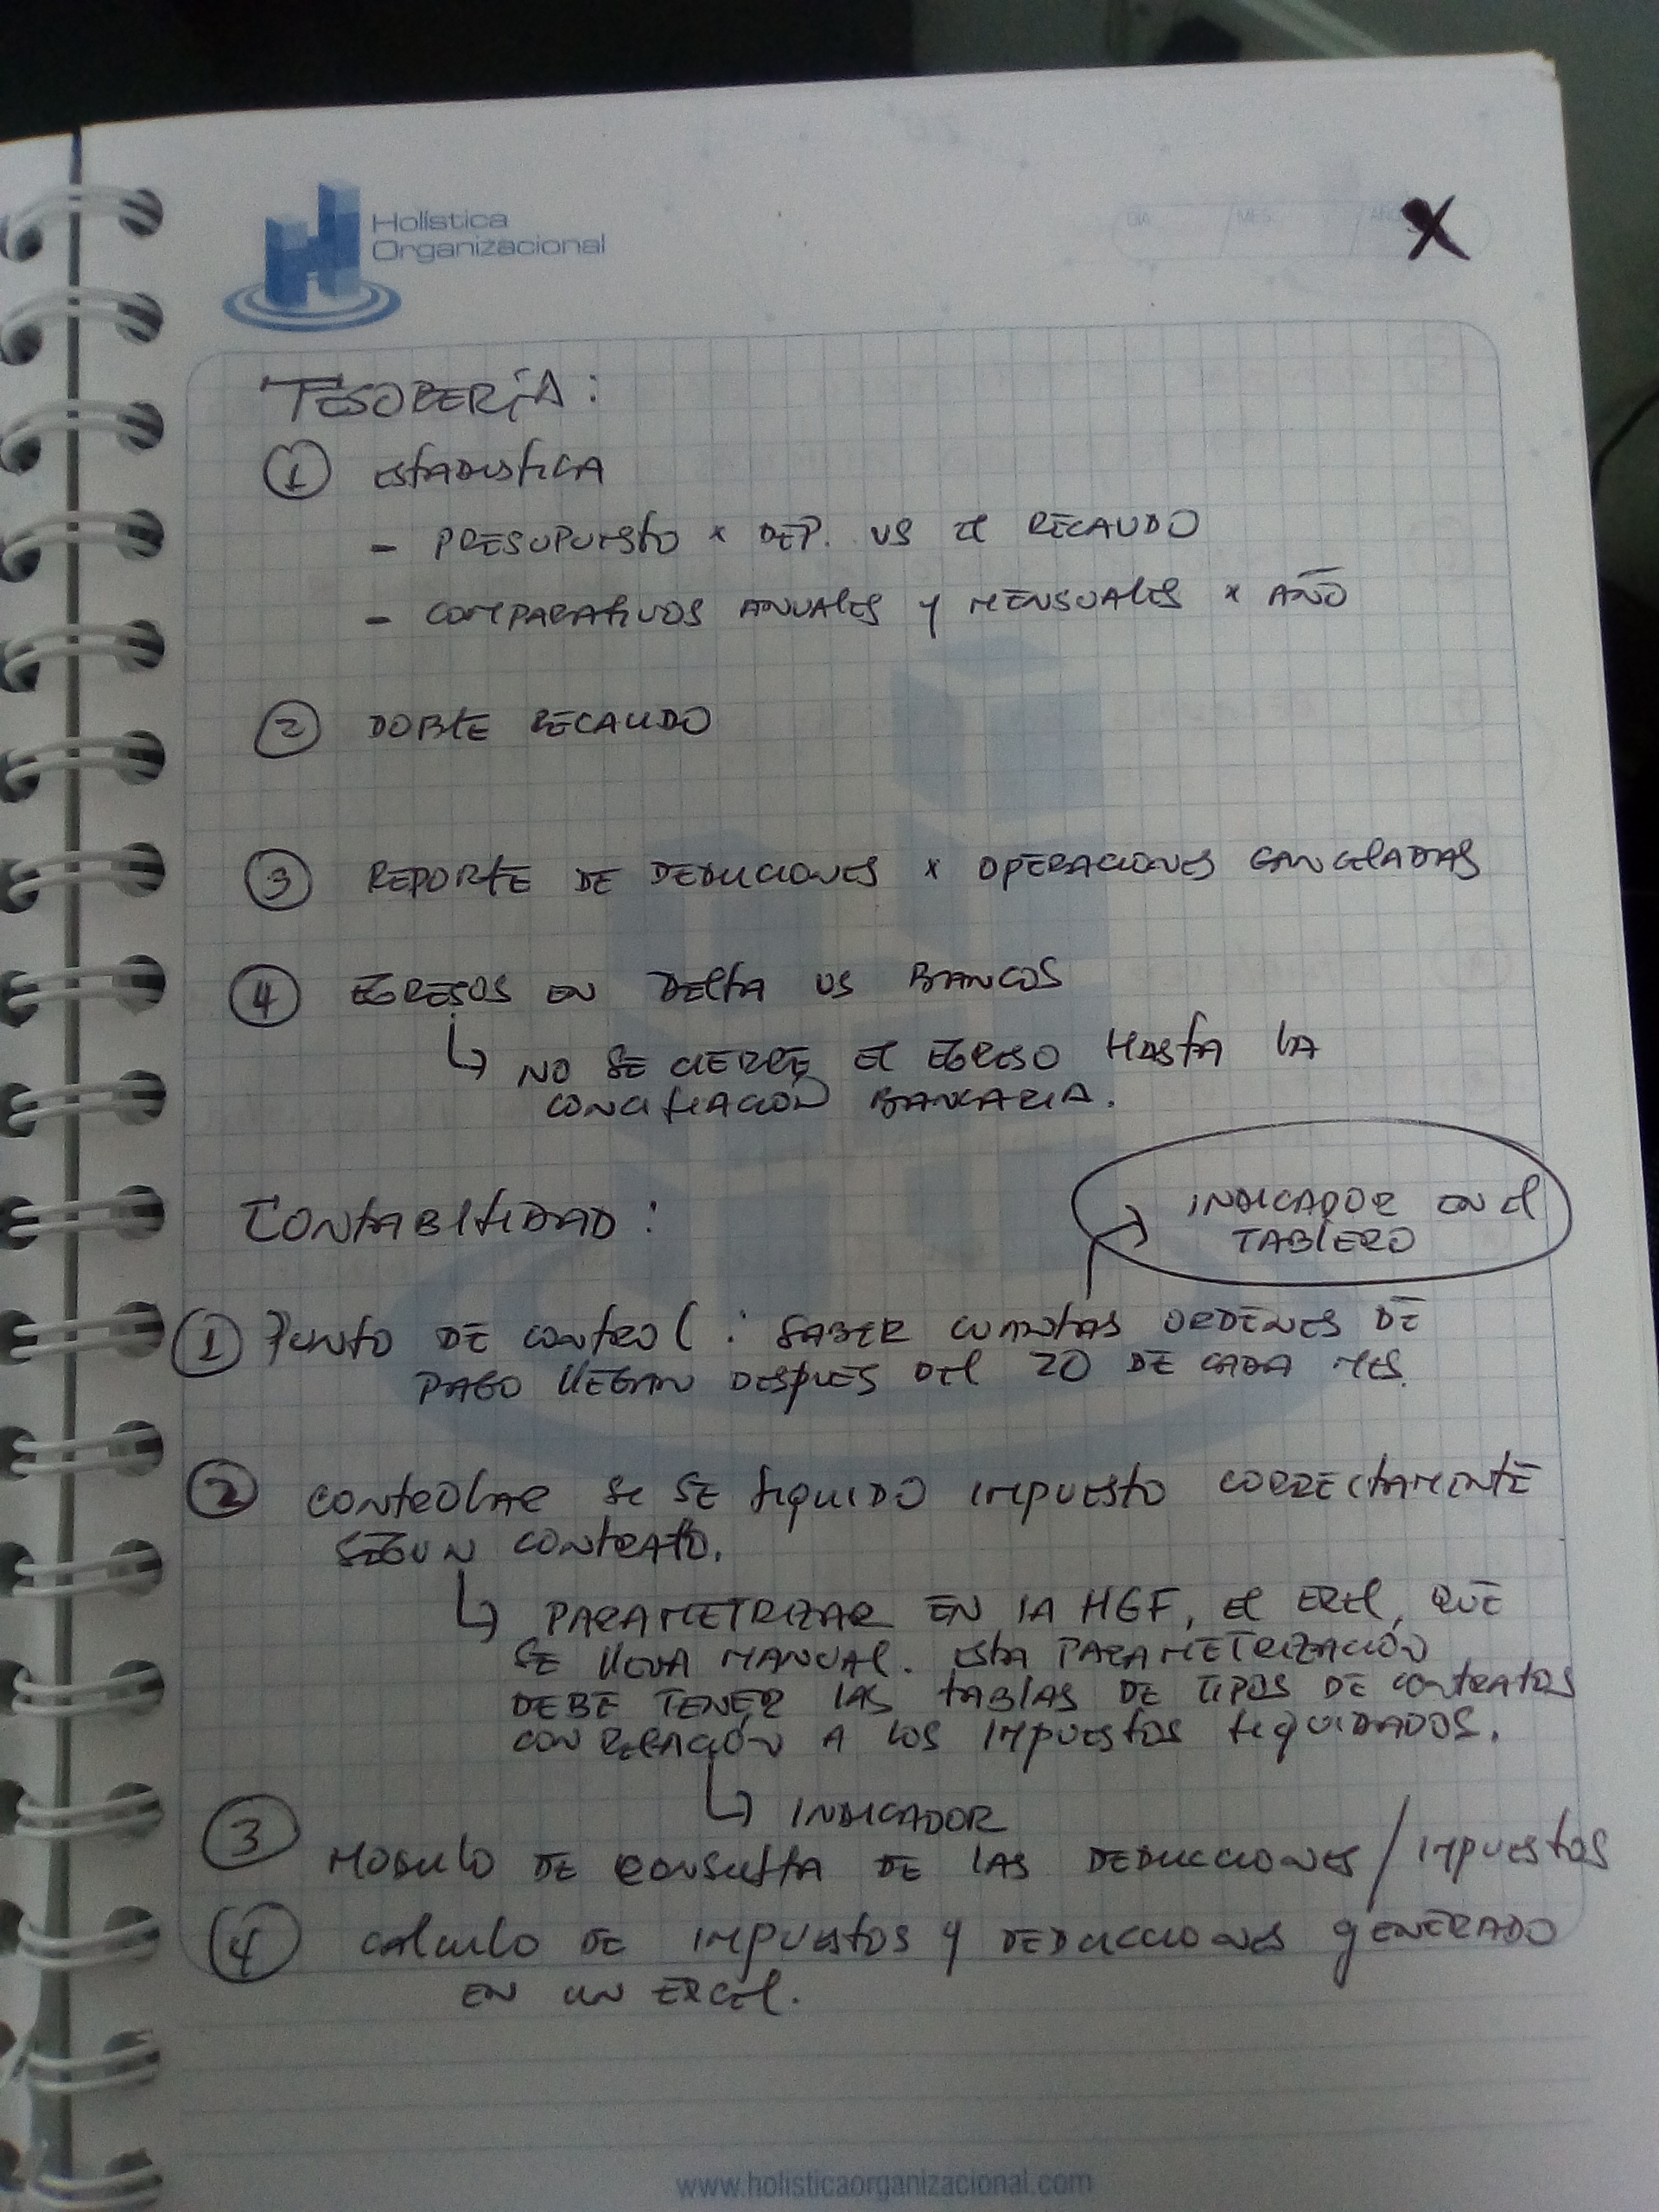 Holística
Organizacional
DIA / MES / AÑO
X
TESORERíA:
① ESTADISTICA
- PRESUPUESTO x DEP. VS El RECAUDO
- COMPARATIVOS ANUALES Y MENSUALES x AÑO
② DOBLE RECAUDO
③ REPORTE DE DEDUCIONES x OPERACIONES CANCELADAS
④ EGRESOS EN DELTA VS BANCOS
↳ NO SE CIERRE El EGRESO HASTA LA
CONCILIACIÓN BANCARIA.
CONTABILIDAD:
→ INDICADOR EN El
TABLERO
① PUNTO DE CONTROL: SABER CUANTAS ORDENES DE
PAGO LLEGAN DESPUES DEL 20 DE CADA MES.
② CONTROLAR SI SE LIQUIDO IMPUESTO CORRECTAMENTE
SEGUN CONTRATO.
↳ PARAMETRIZAR EN LA HGF, El EXEL, QUE
SE LLEVA MANUAL. ESTA PARAMETRIZACIÓN
DEBE TENER LAS TABLAS DE TIPOS DE CONTRATOS
CON RELACIÓN A LOS IMPUESTOS LIQUIDADOS.
↳ INDICADOR
③ MODULO DE CONSULTA DE LAS DEDUCCIONES / IMPUESTOS
④ CALCULO DE IMPUESTOS Y DEDUCCIONES GENERADO
EN UN EXCEL.
www.holisticaorganizacional.com